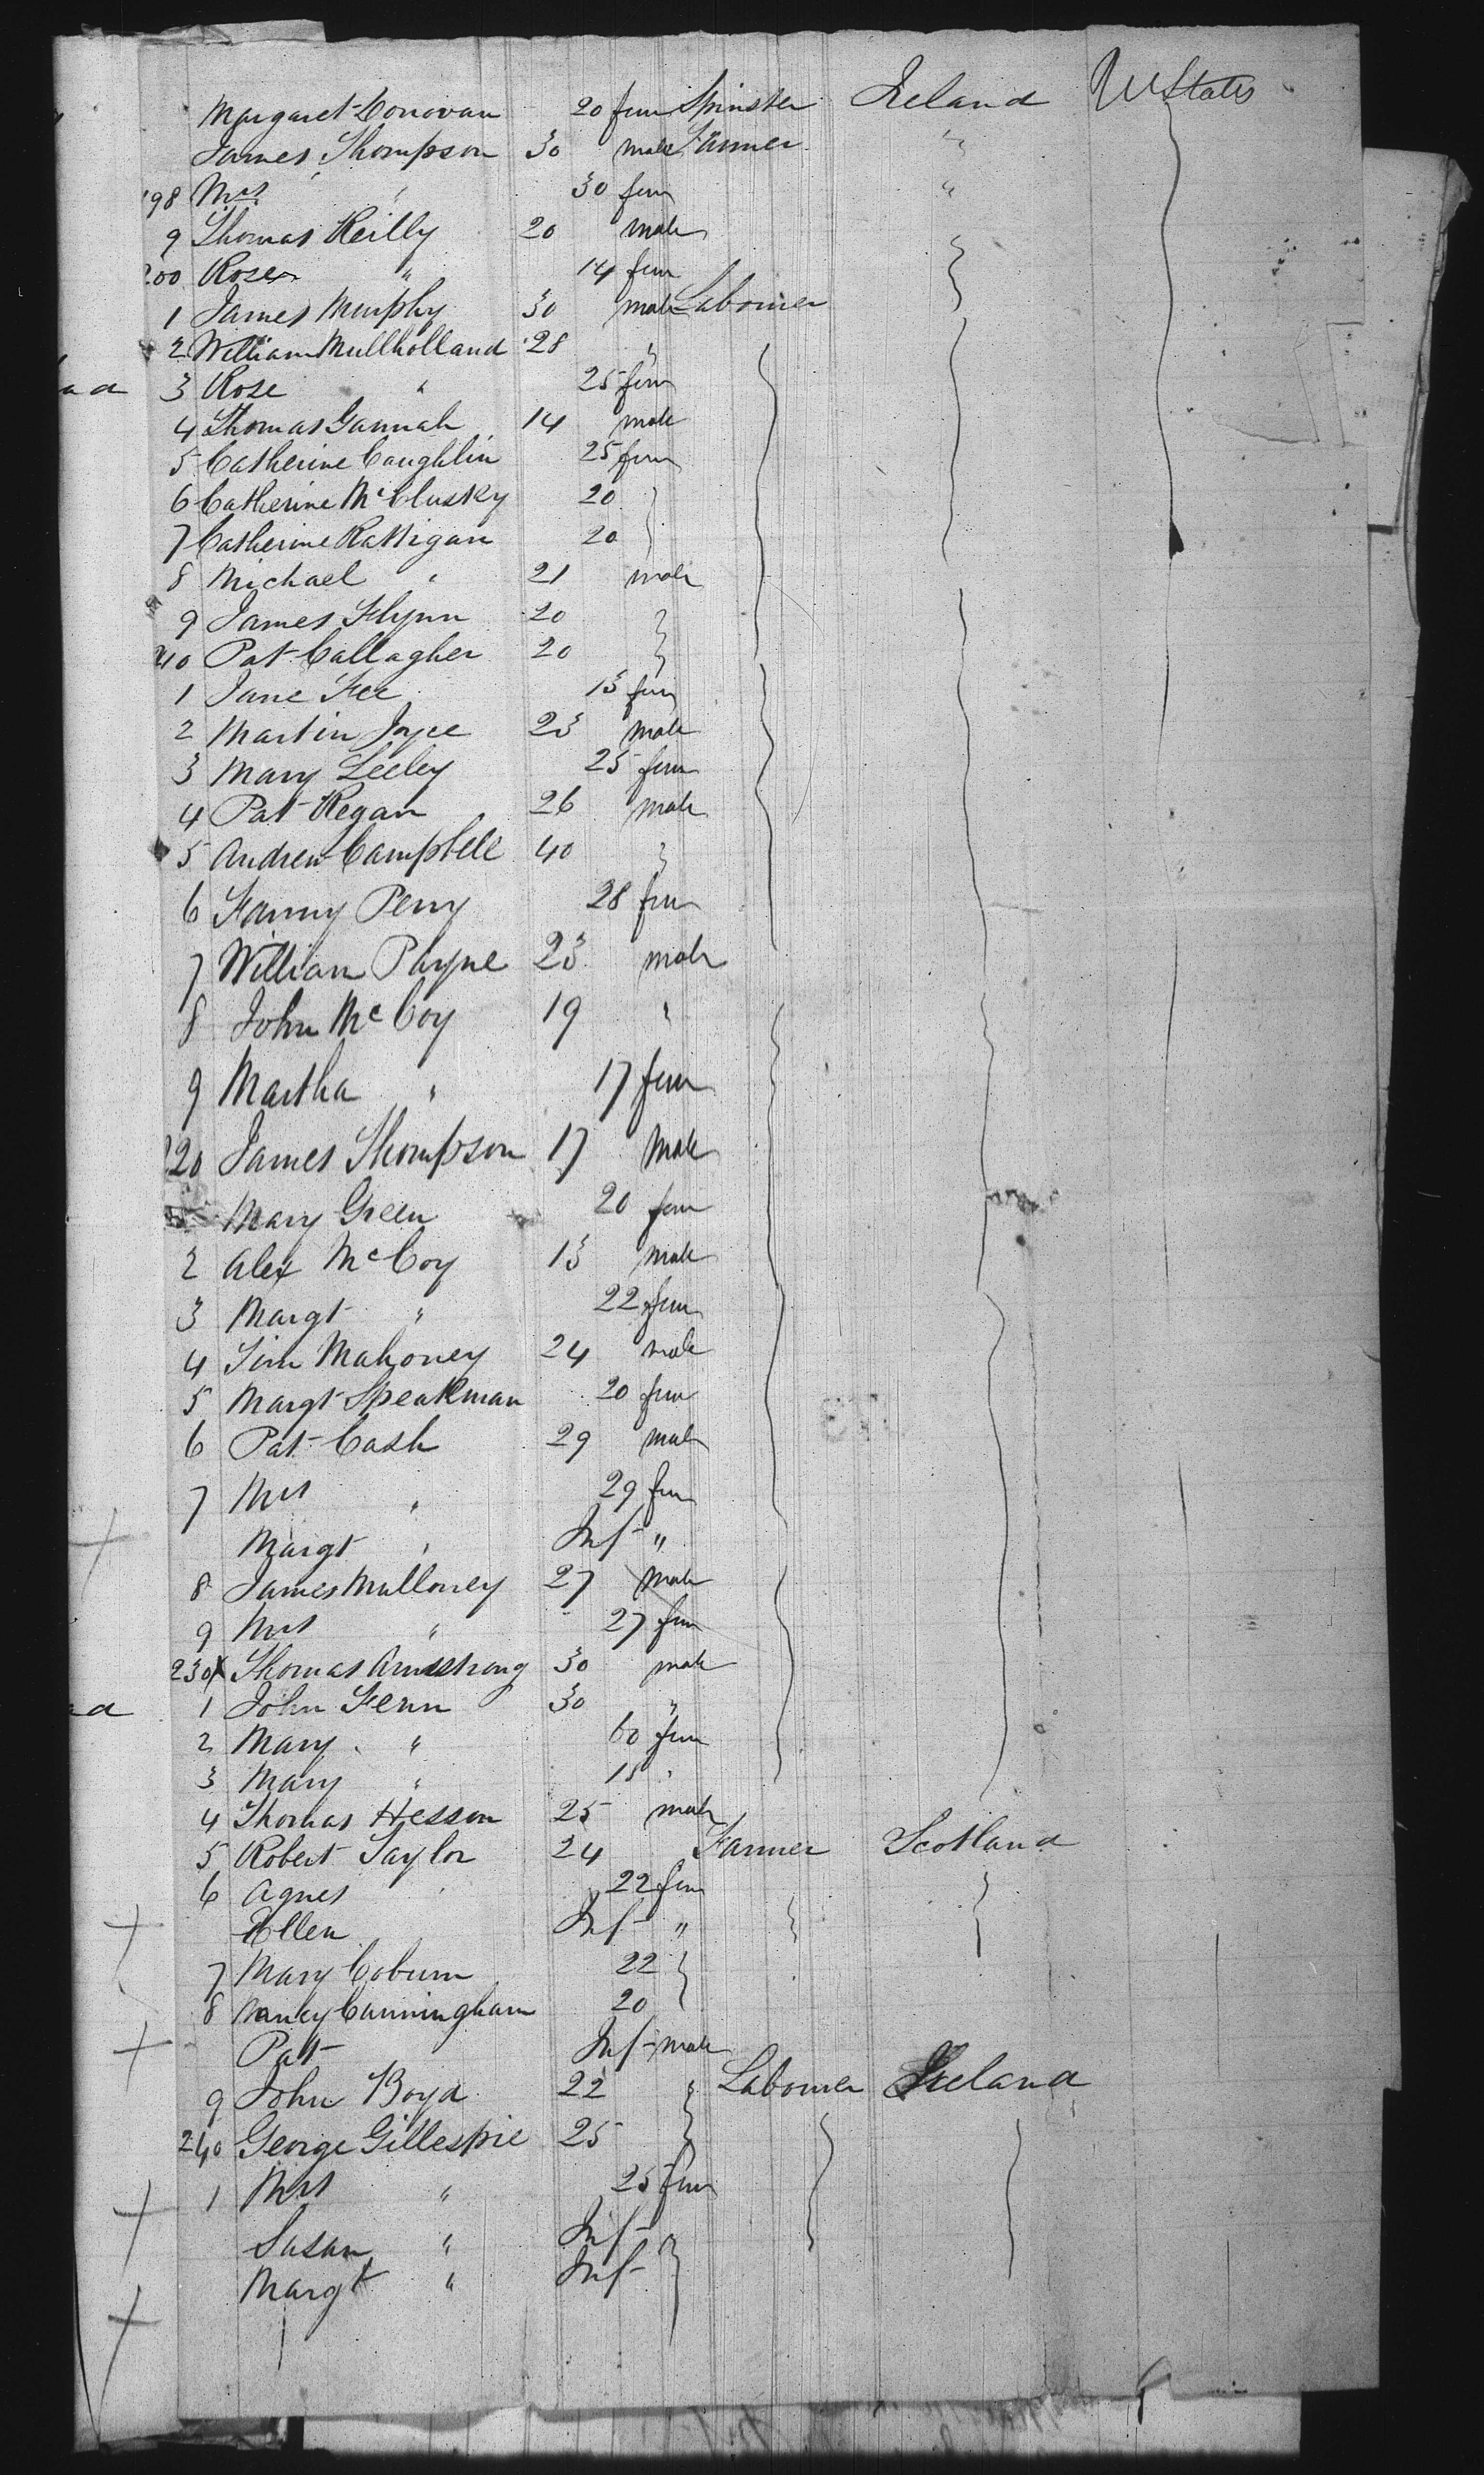 Margaret Donovan 20 fem Spinster Ireland U States
James Thompson 30 male Farmer "
198 Mrs " 30 fem "
9 Thomas Reilly 20 male
200 Rose " 14 fem
1 James Murphy 30 male Labourer
2 William Mullholland 28 "
3 Rose " 25 fem
4 Thomas Gannah 14 male
5 Catherine Coughlin 25 fem
6 Catherine McClusky 20
7 Catherine Rattigan 20
8 Michael " 21 male
9 James Flynn 20
210 Pat Callagher 20
1 Jane Fee 13 fem
2 Martin Joyce 23 male
3 Mary Seeley 25 fem
4 Pat Regan 26 male
5 Andrew Campbell 40 "
6 Fanny Perry 28 fem
7 William Payne 23 male
8 John McCoy 19 "
9 Martha " 17 fem
220 James Thompson 17 male
Mary Green 20 fem
2 Alex McCoy 13 male
3 Margt " 22 fem
4 Tim Mahoney 24 male
5 Margt Speakman 20 fem
6 Pat Cash 29 male
7 Mrs " 29 fem
Margt " Inf "
8 James Mulloney 27 male
9 Mrs " 27 fem
230 x Thomas Armstrong 30 male
1 John Fenn 30 "
2 Mary " 60 fem
3 Mary " 15 "
4 Thomas Hesson 25 male
5 Robert Taylor 24 Farmer Scotland
6 Agnes " 22 fem
Ellen Inf "
7 Mary Coburn 22
8 Nancy Cunningham 20
Pat Inf male
9 John Boyd 22 " Labourer Ireland
240 George Gillespie 25
1 Mrs " 25 fem
Susan " Inf
Margt " Inf